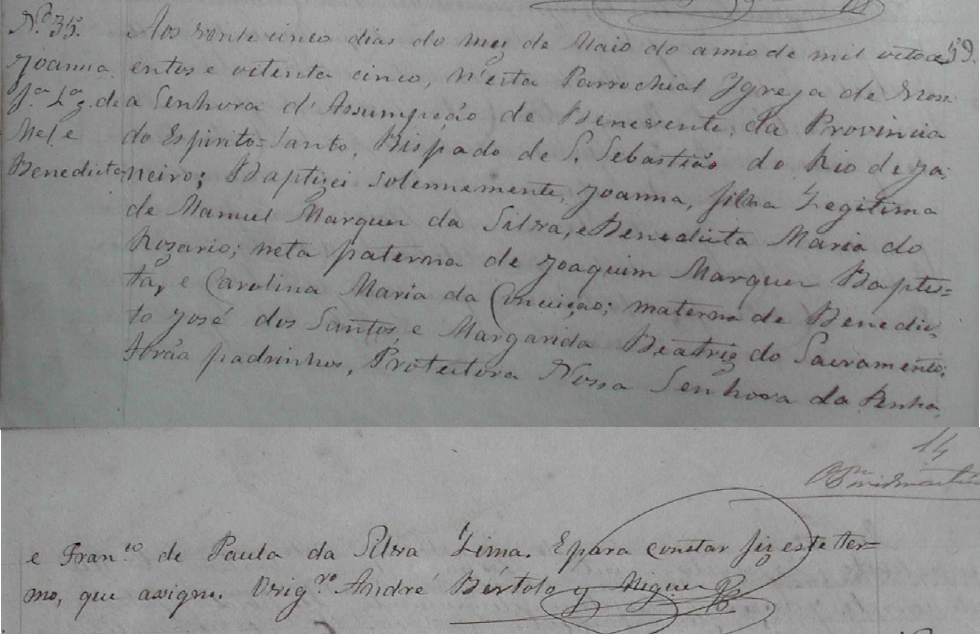 Nº 35.
Joanna
fª Lª, de
Mel e
Benedicta
59.
Aos vente cinco dias do mez de Maio do anno de mil oitoc
entos e oitenta cinco, n'esta Parrochial Ygreja de Noss
a Senhora d'Assumpção de Benevente, da Provincia
do Espirito-Santo, Bispado de S. Sebastião do Rio de Ja-
neiro; Baptizei solennemente, Joanna, filha Legitima
de Manuel Marques da Silva, e Benedicta Maria do
Rozario; neta paterna de Joaquim Marques Baptis=
ta, e Carolina Maria da Conceição; materna de Benedic-
to José dos Santos, e Margarida Beatriz do Sacramento;
forão padrinhos, Protectora Nossa Senhora da Penha,
14
e Franco de Paula da Silva Lima. E para constar fiz este ter=
mo, que assigno. O Vigro André Bértolo y Niguer